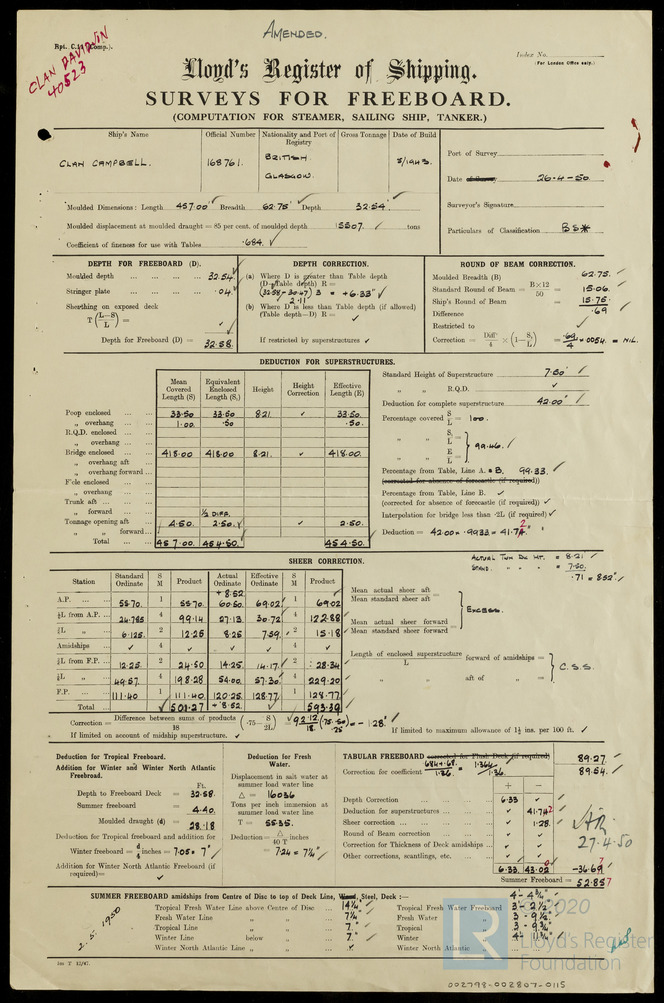 AMENDED.
Rpt. C.11 (Comp.).
CLAN DAVIDSON
40523
Index No.
(For London Office only.)
Lloyd's Register of Shipping.
SURVEYS FOR FREEBOARD.
(COMPUTATION FOR STEAMER, SAILING SHIP, TANKER.)
Ship's Name Official Number Nationality and Port of Registry Gross Tonnage Date of Build
CLAN CAMPBELL. 168761. BRITISH. GLASGOW. 5/1943.
Port of Survey
Date of Survey 26-4-50.
Surveyor's Signature
Particulars of Classification BS*
Moulded Dimensions: Length 457.00' Breadth 62.75' Depth 32.54'
Moulded displacement at moulded draught = 85 per cent. of moulded depth 15507. tons
Coefficient of fineness for use with Tables .684.
DEPTH FOR FREEBOARD (D).
Moulded depth 32.54
Stringer plate .04
Sheathing on exposed deck
T(L-S/L) =
Depth for Freeboard (D) = 32.58.
DEPTH CORRECTION.
(a) Where D is greater than Table depth
(D-Table depth) R =
(32.58-30.47) 3 = +6.33"
2.11
(b) Where D is less than Table depth (if allowed)
(Table depth-D) R =
If restricted by superstructures
ROUND OF BEAM CORRECTION.
Moulded Breadth (B) 62.75.
Standard Round of Beam = B×12/50 = 15.06.
Ship's Round of Beam = 15.75.
Difference .69
Restricted to
Correction = Diff/4 × (1-S₁/L) = .69/4 × .0054 = NIL.
DEDUCTION FOR SUPERSTRUCTURES.
Mean Covered Length (S) Equivalent Enclosed Length (S₁) Height Height Correction Effective Length (E)
Poop enclosed 33.50 33.50 8.21 33.50
" overhang 1.00 .50 .50.
R.Q.D. enclosed
" overhang
Bridge enclosed 418.00 418.00 8.21. 418.00.
" overhang aft
" overhang forward
F'cle enclosed
" overhang
Trunk aft
" forward ½ DIFF.
Tonnage opening aft 4.50 2.50. 2.50.
" " forward
Total 457.00 454.50. 454.50.
Standard Height of Superstructure 7.50'
" " R.Q.D.
Deduction for complete superstructure 42.00"
Percentage covered S/L = 100.
" " S₁/L =
" " E/L = 99.46.
Percentage from Table, Line A. B. 99.33.
(corrected for absence of forecastle (if required))
Percentage from Table, Line B.
(corrected for absence of forecastle (if required))
Interpolation for bridge less than .2L (if required)
Deduction = 42.00 × .9933 = 41.72"
ACTUAL TWN DK HT. = 8.21
STAND. " " " = 7.50.
.71 = 8.52"
SHEER CORRECTION.
Station Standard Ordinate S M Product Actual Ordinate Effective Ordinate S M Product
+8.52
A.P. 55.70. 1 55.70. 60.50. 69.02 1 69.02
⅙L from A.P. 24.785 4 99.14 27.13 30.72 4 122.88
⅓L " 6.125. 2 12.25 8.25 7.59. 2 15.18
Amidships 4 4
⅓L from F.P. 12.25. 2 24.50 14.25. 14.17. 2 28.34
⅙L " 49.57. 4 198.28 54.00. 57.30 4 229.20
F.P. 111.40 1 111.40. 120.25. 128.77. 1 128.77.
Total 501.27 +8.52 593.39
Mean actual sheer aft
Mean standard sheer aft =
Mean actual sheer forward
Mean standard sheer forward =
EXCESS.
Length of enclosed superstructure/L forward of amidships =
" aft of " =
C.S.S.
Correction = Difference between sums of products/18 (.75-S/2L) = 92.12/18 (.75-.50) .25 = -1.28"
If limited on account of midship superstructure.
If limited to maximum allowance of 1½ ins. per 100 ft.
Deduction for Tropical Freeboard.
Addition for Winter and Winter North Atlantic Freeboard.
Ft.
Depth to Freeboard Deck = 32.58.
Summer freeboard = 4.40.
Moulded draught (d) = 28.18
Deduction for Tropical freeboard and addition for
Winter freeboard = d/4 inches = 7.05 = 7"
Addition for Winter North Atlantic Freeboard (if required) =
Deduction for Fresh Water.
Displacement in salt water at summer load water line
Δ = 16036
Tons per inch immersion at summer load water line
T = 55.35.
Deduction = Δ/40 T inches
= 7.24 = 7¼"
TABULAR FREEBOARD corrected for Flush Deck (if required) 89.27.
Correction for coefficient .684+.68/1.36 = 1.364/1.36. 89.54.
+ -
Depth Correction 6.33
Deduction for superstructures 41.72
Sheer correction 1.28.
Round of Beam correction
Correction for Thickness of Deck amidships
Other corrections, scantlings, etc.
6.33 43.02 -36.69
Summer Freeboard = 52.85
27.4.50
SUMMER FREEBOARD amidships from Centre of Disc to top of Deck Line, Wood, Steel, Deck :— 4'- 4¾"
Tropical Fresh Water Line above Centre of Disc 14¼" Tropical Fresh Water Freeboard 3 - 2½"
Fresh Water Line " " 7¼" Fresh Water " 3 - 9½"
Tropical Line " " 7" Tropical " 3 - 9¾"
Winter Line below " 7" Winter " 4 - 11¾"
Winter North Atlantic Line " " Winter North Atlantic "
2.5.1950
5m T 12/47.
002798-002807-0115
LR
2020
Lloyd's Register
Foundation